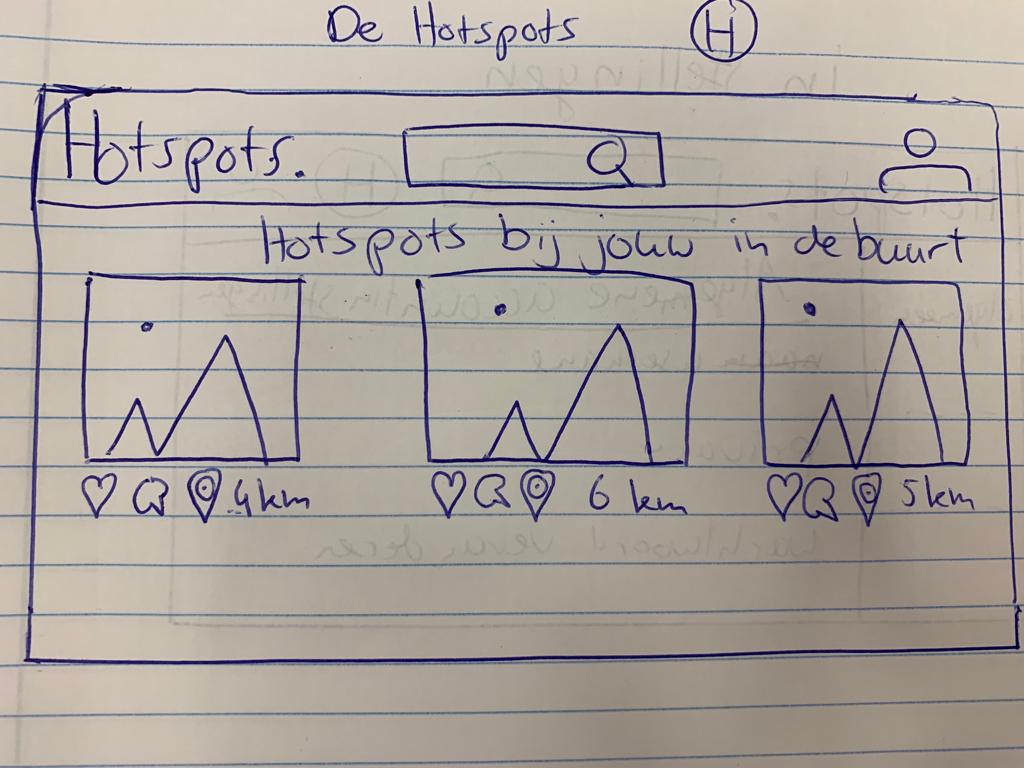 De Hotspots H
Hotspots.
Hotspots bij jouw in de buurt
4km
6 km
5km